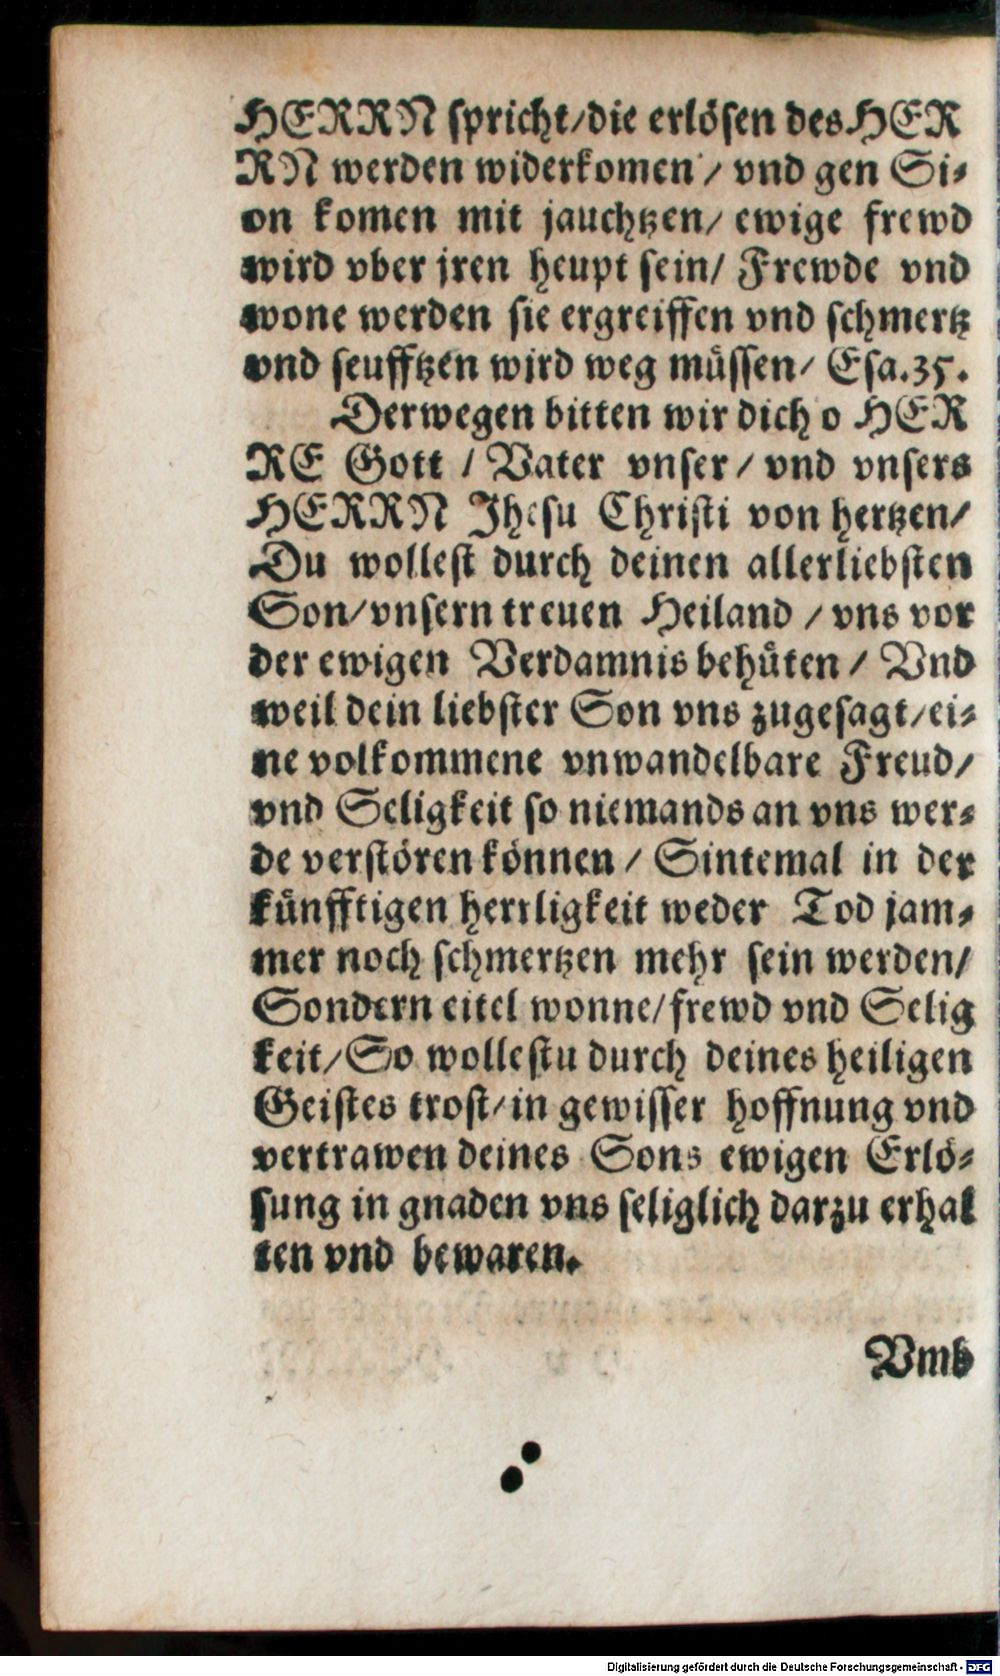 HERRN spricht/die erlösen des HER
RN werden widerkomen / vnd gen Si⸗
on komen mit jauchtzen/ ewige frewd
wird vber jren heupt sein/ Frewde vnd
wone werden sie ergreiffen vnd schmertz
vnd seufftzen wird weg müssen/ Esa.35.
Derwegen bitten wir dich o HER
RE Gott / Vater vnser / vnd vnsers
HERRN Jhesu Christi von hertzen/
Du wollest durch deinen allerliebsten
Son/vnsern treuen Heiland / vns vor
der ewigen Verdamnis behüten / Vnd
weil dein liebster Son vns zugesagt/ei⸗
ne volkommene vnwandelbare Freud/
vnd Seligkeit so niemands an vns wer⸗
de verstören können / Sintemal in der
künfftigen herrligkeit weder Tod jam⸗
mer noch schmertzen mehr sein werden/
Sondern eitel wonne/frewd vnd Selig
keit/So wollestu durch deines heiligen
Geistes trost/in gewisser hoffnung vnd
vertrawen deines Sons ewigen Erlö⸗
sung in gnaden vns seliglich darzu erhal
ten vnd bewaren.
Vmb
Digitalisierung gefördert durch die Deutsche Forschungsgemeinschaft - DFG